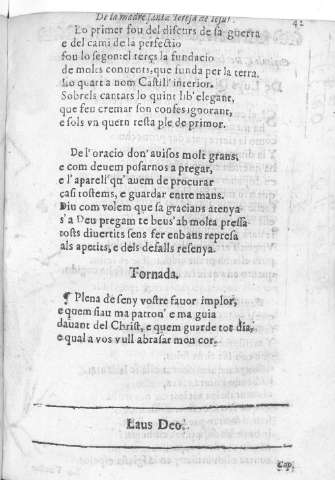 De la madre santa Teresa de Iesus. 42
Lo primer fou del discurs de sa guerra
e del cami de la perfectio
fou lo segon: el terçs la fundacio
de molts conuents, que funda per la terra.
Lo quart a nom Castill' interior.
Sobrels cantars lo quint lib' elegant,
que feu cremar son confes ignorant,
e sols va quern resta ple de primor.
De l'oracio don' auisos molt grans,
e com deuem posarnos a pregar,
e l'aparell qu' auem de procurar
casi tostems, e guardar entre mans.
Diu com volem que sa gracians atenya
s'a Deu pregam te beus' ab molta pressa
tosts diuertits sens fer enbans represa
als apetits, e dels defalls resenya.
Tornada.
¶ Plena de seny vostre fauor implor,
e quem siau ma patron' e ma guia
dauant del Christ, e quem guarde tot dia,
e qual a vos vull abrasar mon cor.
Laus Deo.
Cap.